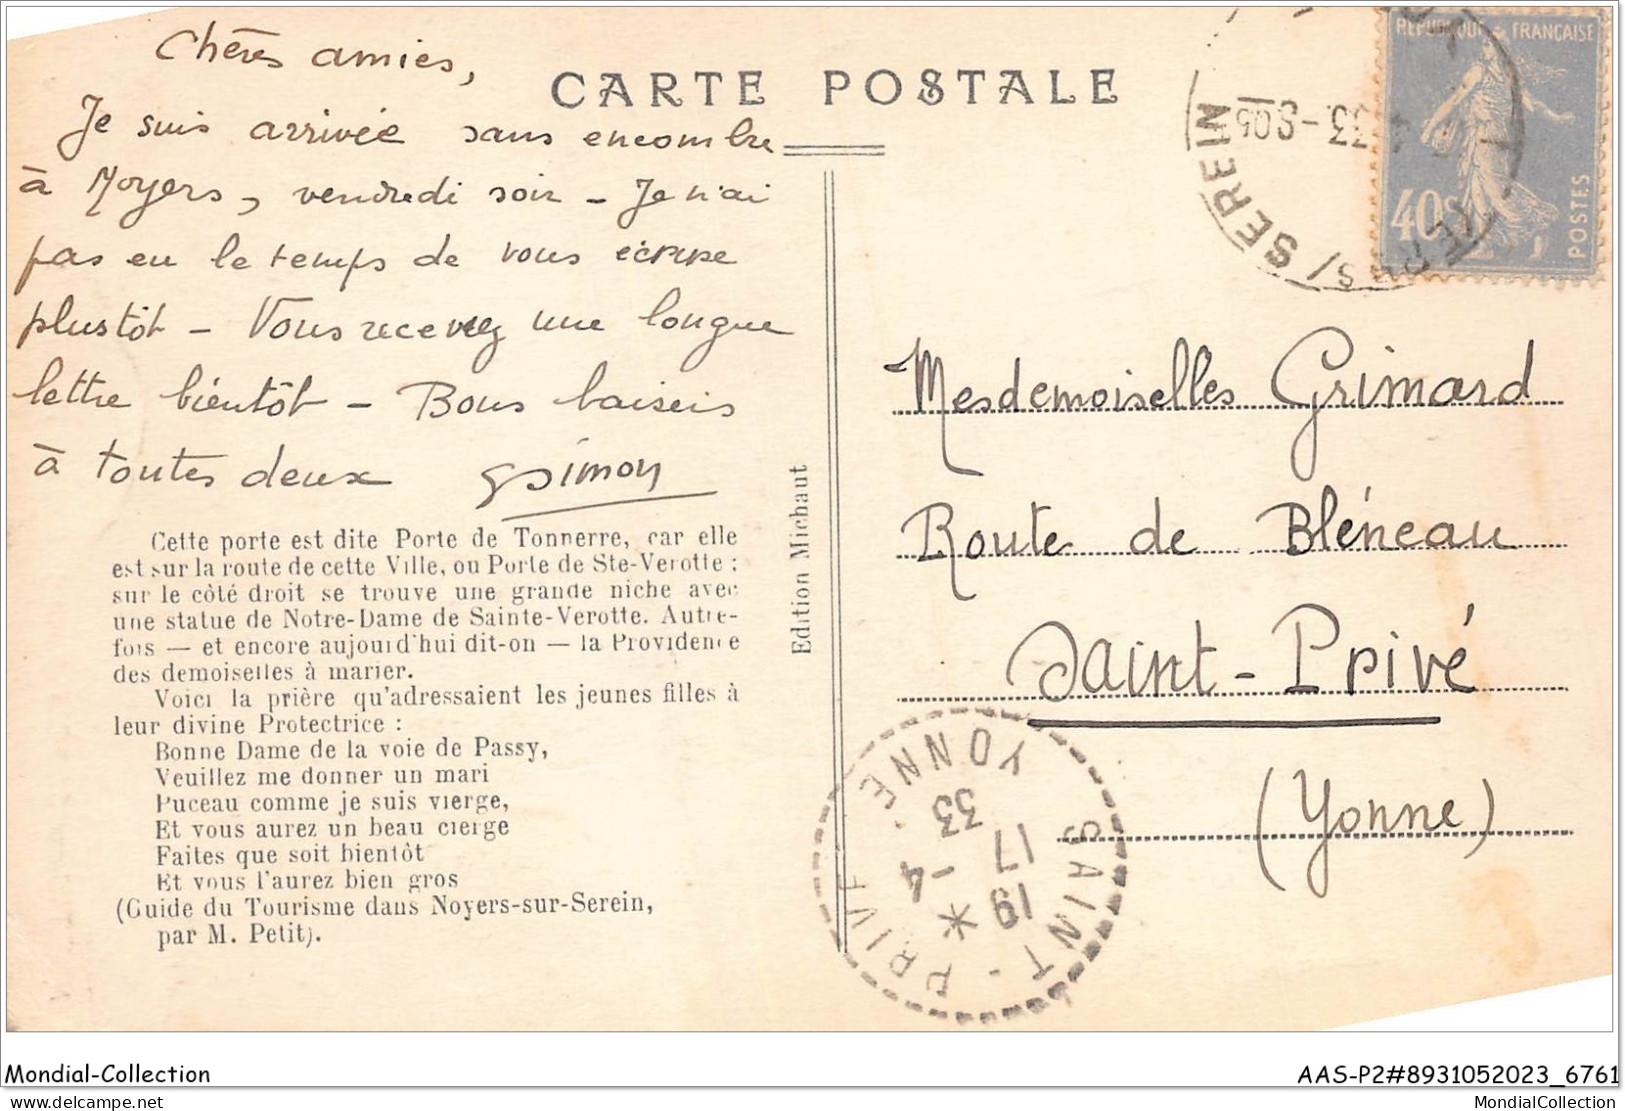 Chères amies,
CARTE POSTALE
Je suis arrivée sans encombre
à Noyers, vendredi soir - Je n'ai
pas eu le temps de vous écrire
plustôt - Vous recevrez une longue
lettre bientôt - Bons baisers
à toutes deux
Simon
Cette porte est dite Porte de Tonnerre, car elle
est sur la route de cette Ville, ou Porte de Ste-Verotte ;
sur le côté droit se trouve une grande niche avec
une statue de Notre-Dame de Sainte-Verotte. Autre-
fois — et encore aujourd'hui dit-on — la Providence
des demoiselles à marier.
Voici la prière qu'adressaient les jeunes filles à
leur divine Protectrice :
Bonne Dame de la voie de Passy,
Veuillez me donner un mari
Puceau comme je suis vierge,
Et vous aurez un beau cierge
Faites que soit bientôt
Et vous l'aurez bien gros
(Guide du Tourisme dans Noyers-sur-Serein,
par M. Petit).
Edition Michaut
REPUBLIQUE FRANÇAISE
40c
POSTES
S/ SEREIN
Mesdemoiselles Grimard
Route de Bléneau
Saint-Privé
(Yonne)
SAINT-PRIVÉ YONNE
19
17 -4
33
Mondial-Collection
AAS-P2#8931052023_6761
delcampe.net
MondialCollection